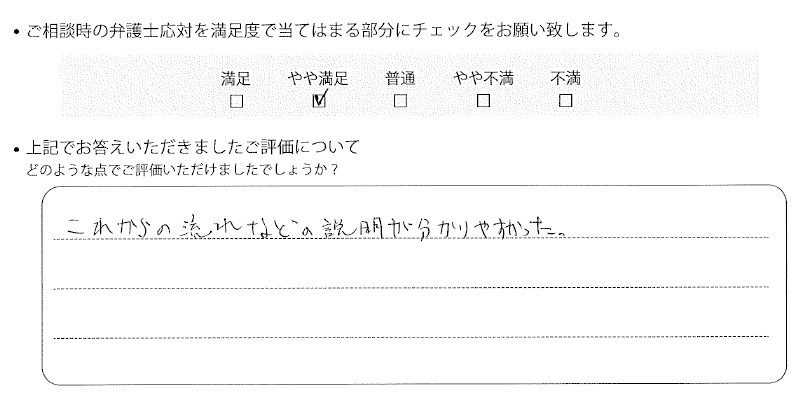 ・ご相談時の弁護士応対を満足度で当てはまる部分にチェックをお願い致します。
満足 やや満足 普通 やや不満 不満
□ ☑ □ □ □
・上記でお答えいただきましたご評価について
どのような点でご評価いただけましたでしょうか？
これからの流れなどの説明が分かりやすかった。